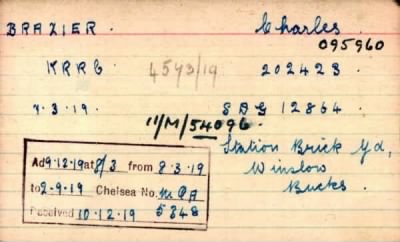 BRAZIER. Charles.
095960
KRRC 4543/19 202423
7.3.19. SDG 12864.
11/M/54096.
Station Brick Yd,
Winslow
Bucks.
Ad 9.12.19 at 8/3 from 8.3.19
to 2-9-19 Chelsea No. MPA
Received 10.12.19 5848